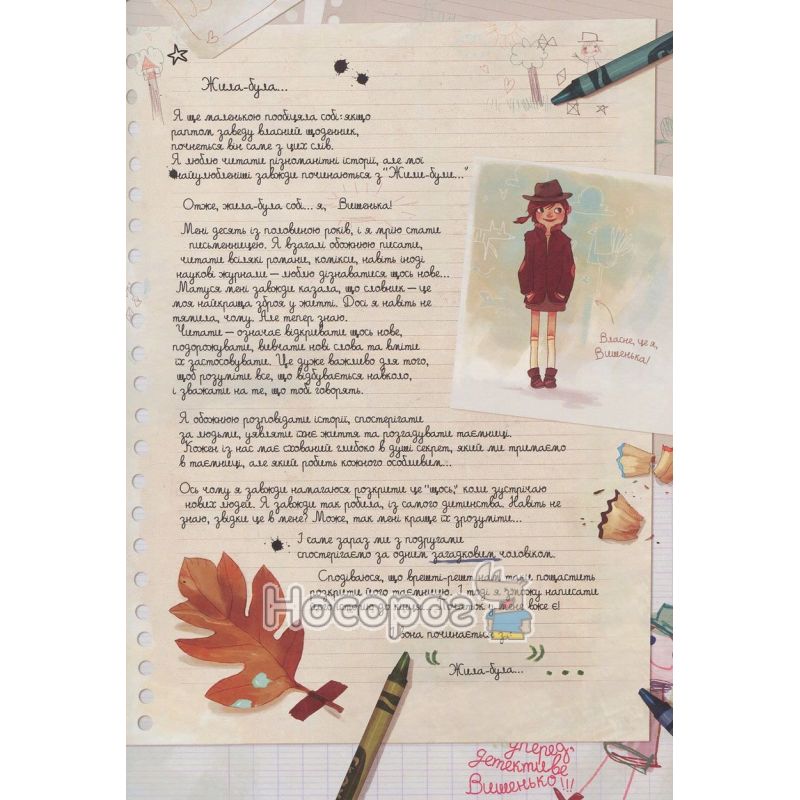 Жила-була...
Я ще маленькою пообіцяла собі: якщо
раптом заведу власний щоденник,
почнеться він саме з цих слів.
Я люблю читати різноманітні історії, але мої
найулюбленіші завжди починаються з "Жили-були..."
Отже, жила-була собі... я, Вишенька!
Мені десять із половиною років, і я мрію стати
письменницею. Я взагалі обожнюю писати,
читати всілякі романи, комікси, навіть іноді
наукові журнали — люблю дізнаватися щось нове...
Матуся мені завжди казала, що словник — це
моя найкраща зброя у житті. Досі я навіть не
тямила, чому. Але тепер знаю.
Читати — означає відкривати щось нове,
подорожувати, вивчати нові слова та вміти
їх застосовувати. Це дуже важливо для того,
щоб розуміти все, що відбувається навколо,
і зважати на те, що тобі говорять.
Власне, це я,
Вишенька!
Я обожнюю розповідати історії, спостерігати
за людьми, уявляти їхнє життя та розгадувати таємниці.
Кожен із нас має схований глибоко в душі секрет, який ми тримаємо
в таємниці, але який робить кожного особливим...
Ось чому я завжди намагаюся розкрити це "щось," коли зустрічаю
нових людей. Я завжди так робила, із самого дитинства. Навіть не
знаю, звідки це в мене? Може, так мені краще їх зрозуміти...
І саме зараз ми з подругами
спостерігаємо за одним загадковим чоловіком.
Сподіваюся, що врешті-решт нам таки пощастить
розкрити його таємницю. І тоді я зможу написати
його історію до кінця... Початок у мене вже є!
Вона починається
"Жила-була... "...
Носорог
Уперед,
детективе
Вишенько!!!